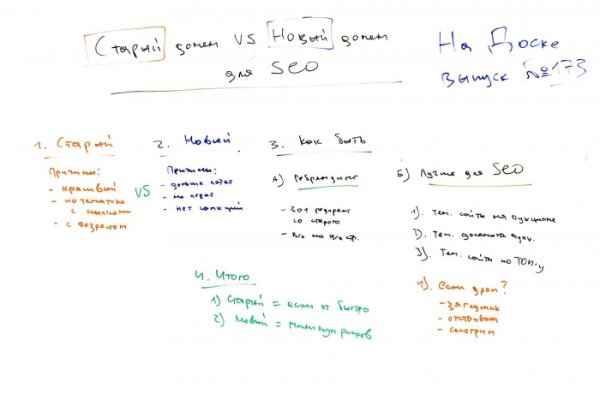 Старый домен VS Новый домен
для SEO
На Доске
выпуск №173
1. Старый
Причины:
- красивый
- по тематике
с ссылками
- с возрастом
VS
2. Новый
Причины:
- дольше
- нет санкций
3. Как быть
А) Ребрендинг
- 301 редирект
со старого
- все на все стр.
Б) Лучше для SEO
1). Тем. сайты на аукционе
2). Тем. домены
3). Тем. сайты по ТОПу
4). если дроп?
- загрузить
- отстоять
- смотрим
4. Итого
1) Старый = если оч быстро
2) Новый = минимум рисков